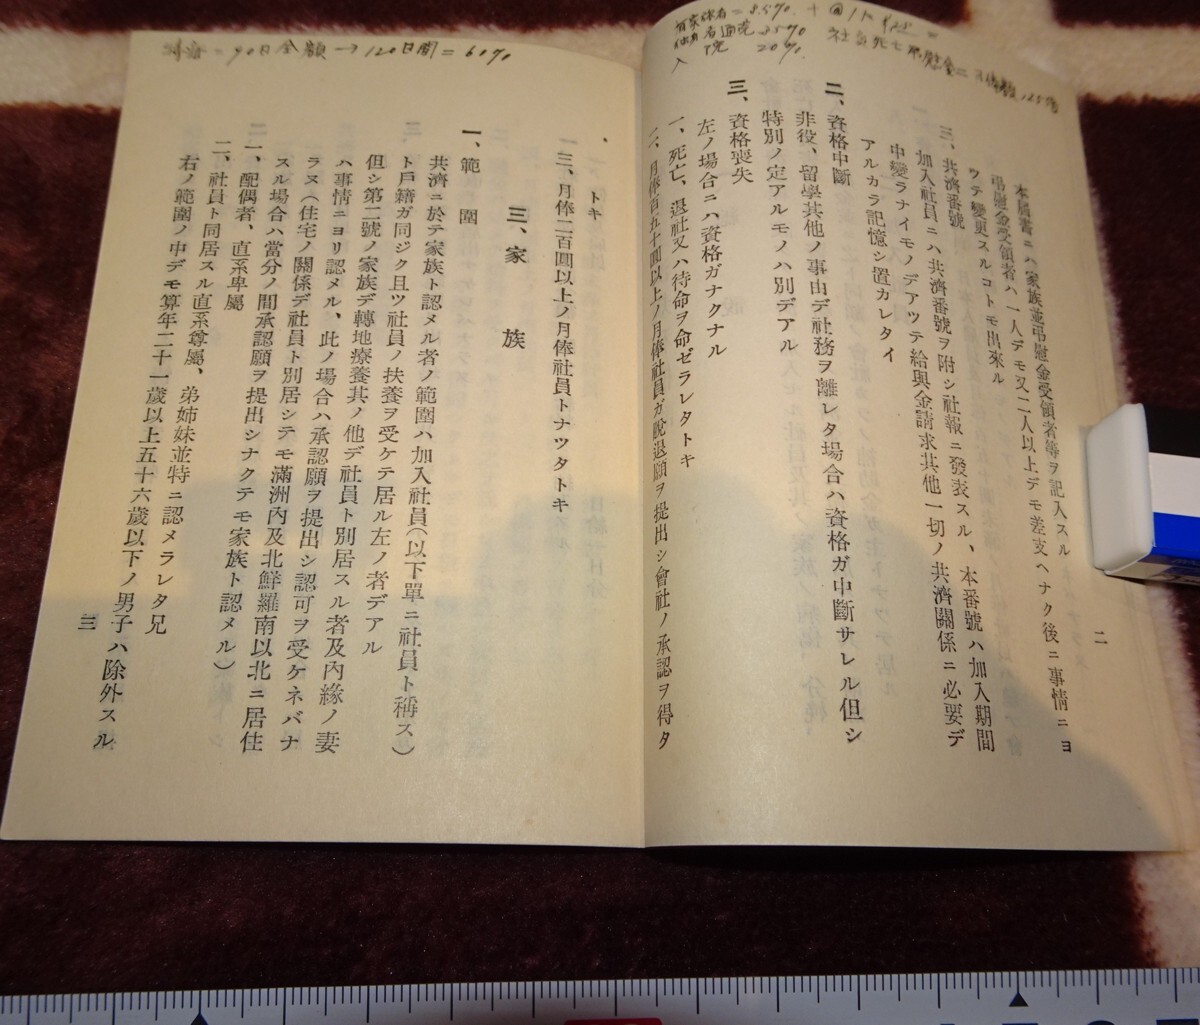 本屆書ニハ家族並弔慰金受領者等ヲ記入スル
弔慰金受領者ハ一人デモ又二人以上デモ差支ヘナク後ニ事情ニヨ
ツテ變更スルコトモ出來ル
三、共濟番號
加入社員ニハ共濟番號ヲ附シ社報ニ發表スル、本番號ハ加入期間
中變ラナイモノデアツテ給與金請求其他一切ノ共濟關係ニ必要デ
アルカラ記憶シ置カレタイ
二、資格中斷
非役、留學其他ノ事由デ社務ヲ離レタ場合ハ資格ガ中斷サレル但シ
特別ノ定アルモノハ別デアル
三、資格喪失
左ノ場合ニハ資格ガナクナル
一、死亡、退社又ハ待命ヲ命ゼラレタトキ
二、月俸百五十圓以上ノ月俸社員ガ脫退願ヲ提出シ會社ノ承認ヲ得タ
二
トキ
三、月俸二百圓以上ノ月俸社員トナツタトキ
三、家族
一、範圍
共濟ニ於テ家族ト認メル者ノ範圍ハ加入社員(以下單ニ社員ト稱ス)
ト戶籍ガ同ジク且ツ社員ノ扶養ヲ受ケテ居ル左ノ者デアル
但シ第二號ノ家族デ轉地療養其ノ他デ社員ト別居スル者及內緣ノ妻
ハ事情ニヨリ認メル、此ノ場合ハ承認願ヲ提出シ認可ヲ受ケネバナ
ラヌ(住宅ノ關係デ社員ト別居シテモ滿洲內及北鮮羅南以北ニ居住
スル場合ハ當分ノ間承認願ヲ提出シナクテモ家族ト認メル)
一、配偶者、直系卑屬
二、社員ト同居スル直系尊屬、弟姉妹並特ニ認メラレタ兄
右ノ範圍ノ中デモ算年二十一歲以上五十六歲以下ノ男子ハ除外スル
三
90日全額→120日間=60%